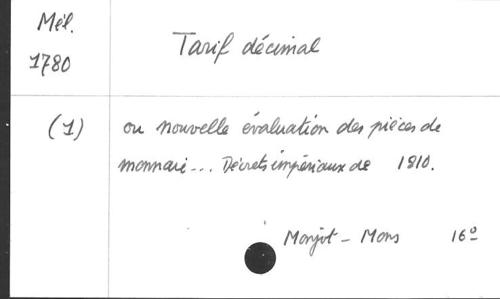 Mél.
1780
Tarif décimal
(1)
ou nouvelle évaluation des pièces de
monnaie... Décrets impériaux de 1810.
Monjot - Mons 16º